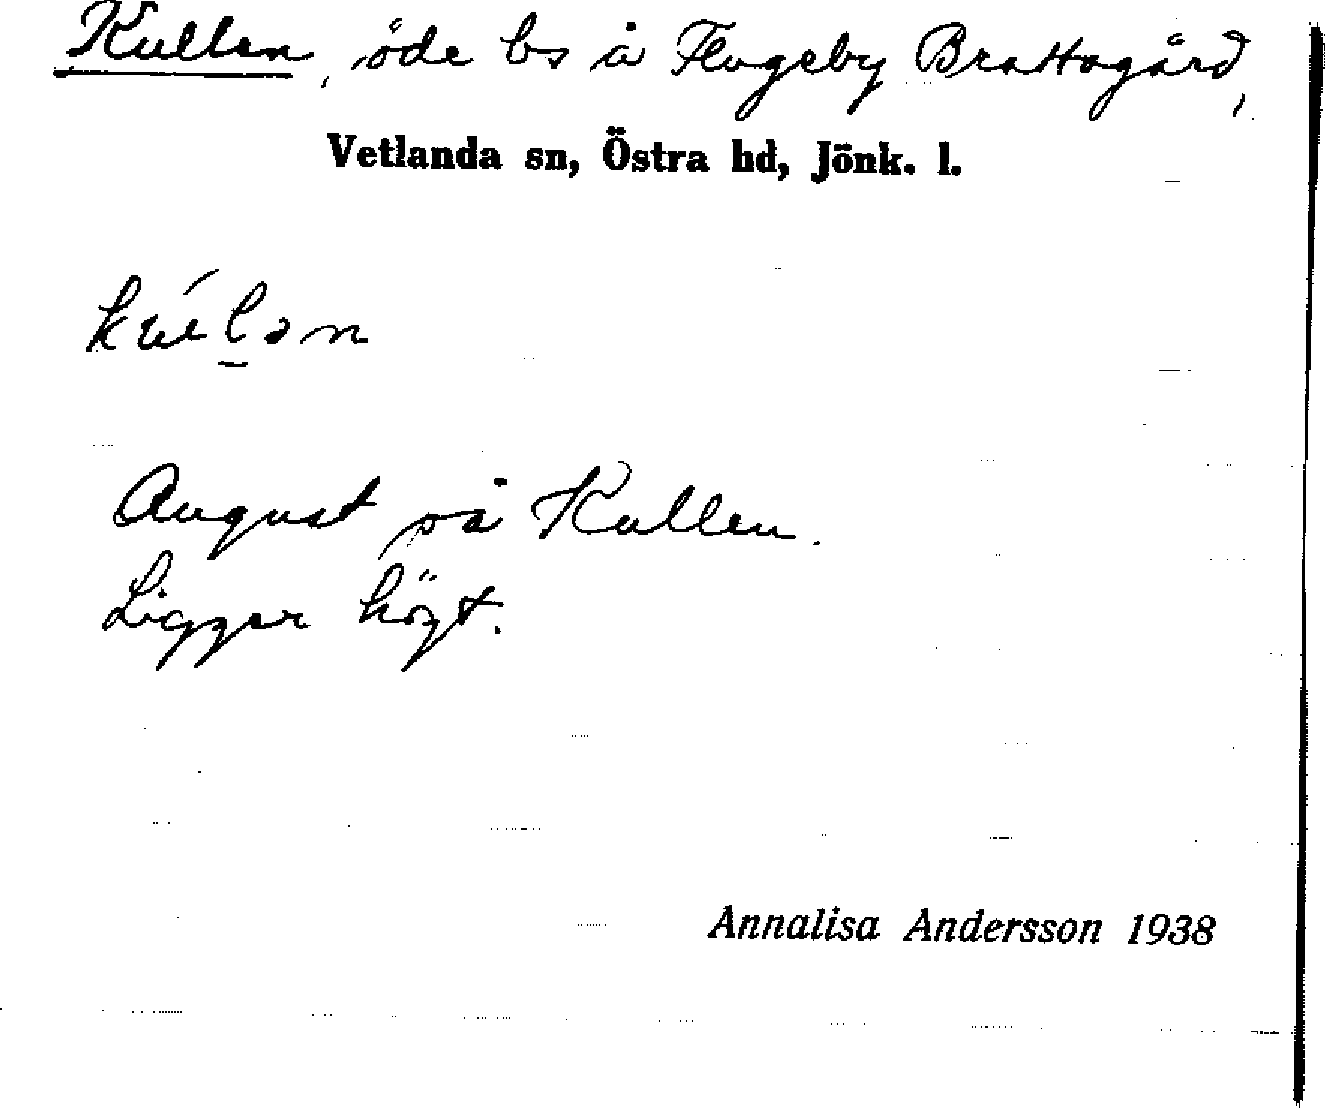 Kullen, öde bs å Flugeby Brattagård,
Vetlanda sn, Östra hd, Jönk. l.
kúl̠ən
August på Kullen.
Ligger högt.
Annalisa Andersson 1938